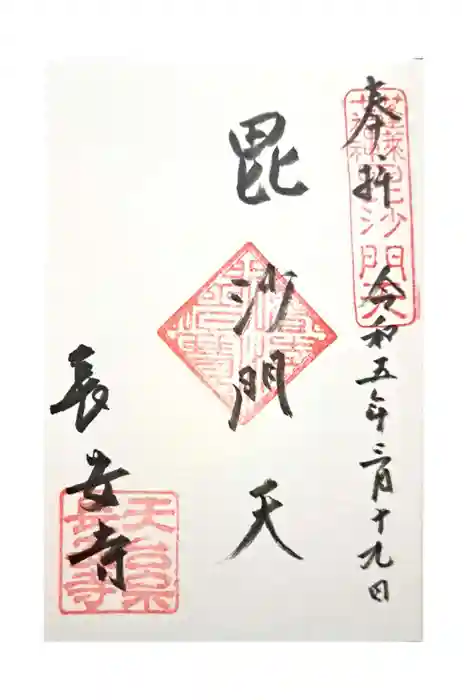 奉拝
令和五年三月十九日
毘沙門天
長安寺
天台宗
長安寺